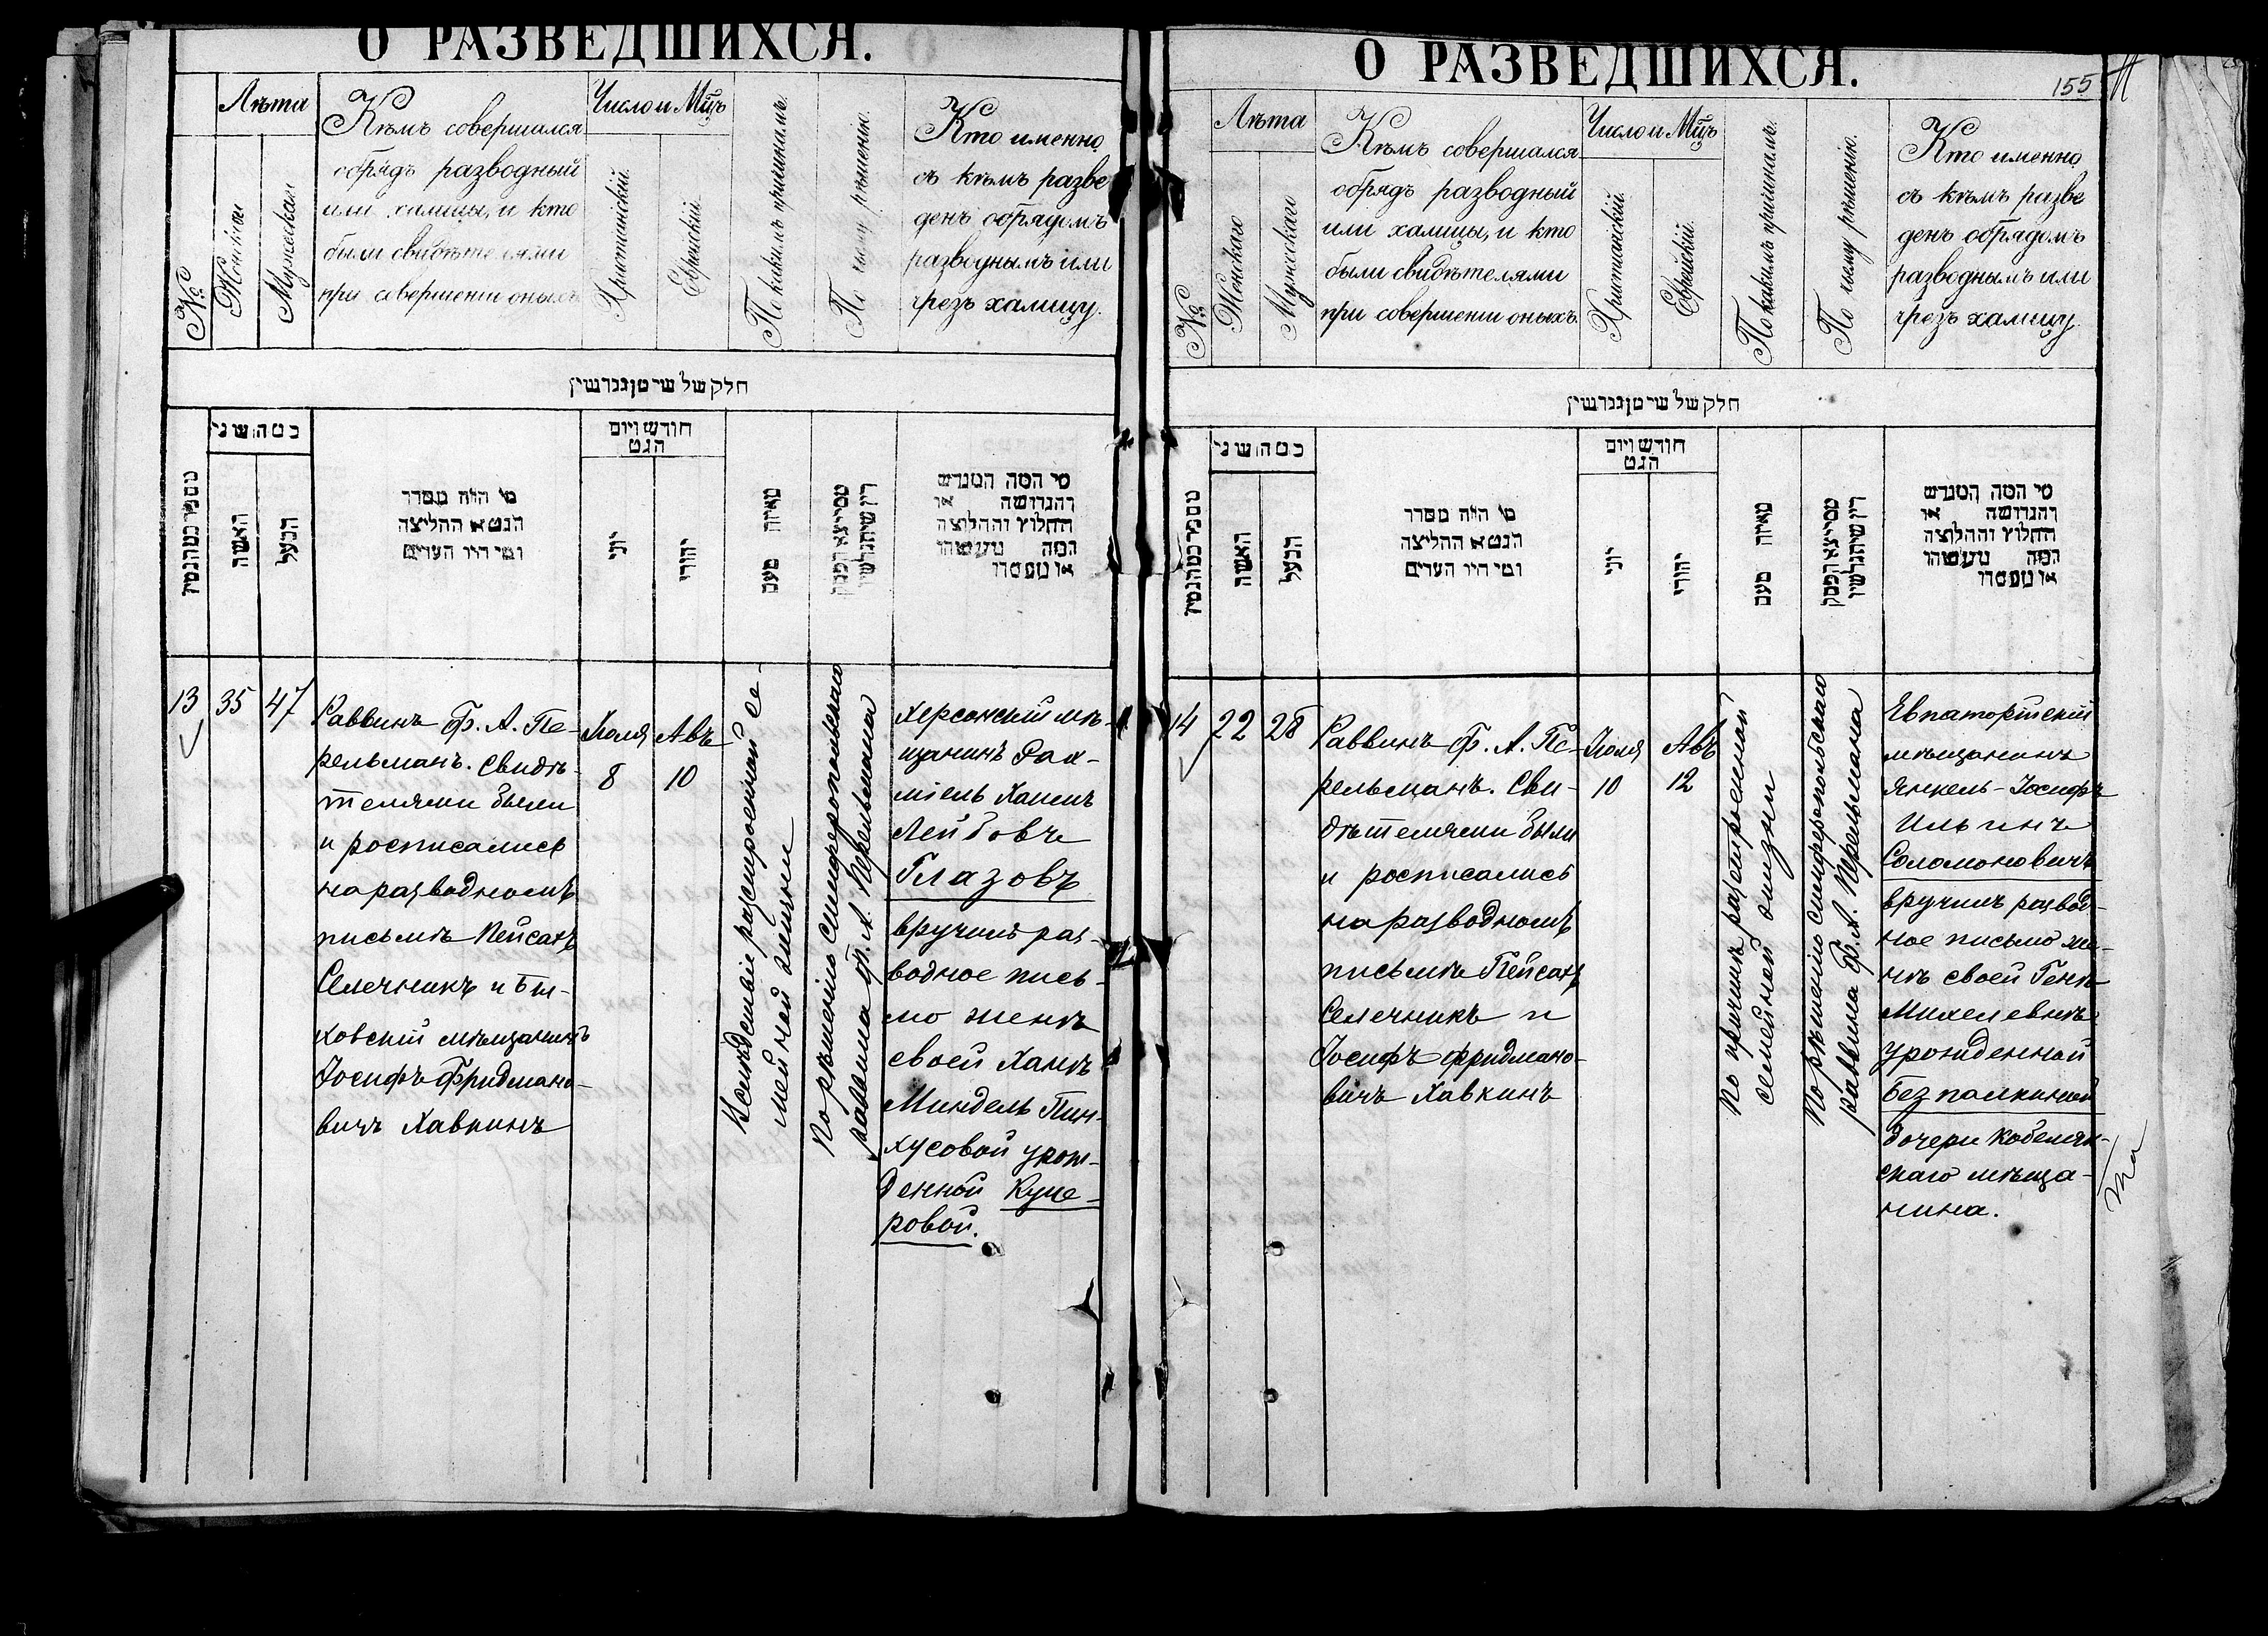 О РАЗВЕДШИХСЯ.
№
Лѣта
Женскаго
Мужескаго
Кѣмъ совершался
обрядъ разводный
или халицы, и кто
были свидѣтелями
при совершеніи оныхъ.
Число и Мцъ
Христіанскій.
Еврейскій.
По какимъ причинамъ.
По чьему рѣшенію.
Кто именно
съ кѣмъ разве
денъ обрядомъ
разводнымъ или
чрезъ халицу.
חלק של שיטן גנרשין
האשה
הבעל
מי היה מסדר
הגט או החליצה
ומי היו העדים
חודש ויום
הגט
יוני
יהודי
מאיזה טעם
מי המה המגרש
והגרושה או
החלוץ והחלוצה
המה מעשהו
או מפסדו
13
35
47
Раввинъ Ф. А. Пе-
рельманъ. Свидѣ-
телями были
и росписались
на разводномъ
письмѣ Пейсахъ
Селечникъ и Бы-
ховскій мѣщанинъ
Іосифъ Фридмано-
вичъ Хавкинъ
Іюля
8
Авъ
10
Вслѣдствіе разстроенной се-
мейной жизни
По рѣшенію Симферопольскаго
раввина Ф. А. Перельмана
Херсонскій мѣ-
щанинъ Рах-
міель Хаимъ
Лейбовъ
Глазовъ
вручилъ раз-
водное пись-
мо женѣ
своей Ханѣ
Миндель Пин-
хусовой урож-
денной Купе-
ровой.
О РАЗВЕДШИХСЯ.
155
№
Лѣта
Женскаго
Мужскаго
Кѣмъ совершался
обрядъ разводный
или халицы, и кто
были свидѣтелями
при совершеніи оныхъ.
Число и Мцъ
Христіанскій.
Еврейскій.
По какимъ причинамъ.
По чьему рѣшенію.
Кто именно
съ кѣмъ разве
денъ обрядомъ
разводнымъ или
чрезъ халицу.
חלק של שיטן גנרשין
האשה
הבעל
מי היה מסדר
הגט או החליצה
ומי היו העדים
חודש ויום
הגט
יוני
יהודי
מאיזה טעם
מי המה המגרש
והגרושה או
החלוץ והחלוצה
המה מעשהו
או מפסדו
14
22
28
Раввинъ Ф. А. Пе-
рельманъ. Сви-
дѣтелями были
и росписались
на разводномъ
письмѣ Пейсахъ
Селечникъ и
Іосифъ Фридмано-
вичъ Хавкинъ
Іюля
10
Авъ
12
По причинѣ разстроенной
семейной жизни
По рѣшенію Симферопольскаго
раввина Ф. А. Перельмана
Евпаторійскій
мѣщанинъ
Янкель-Іосифъ
Ильинъ
Соломоновичъ
вручилъ развод-
ное письмо же-
нѣ своей Генѣ
Михелевнѣ
урожденной
Безпалкиной
дочери Кобеляк-
скаго мѣща-
нина.